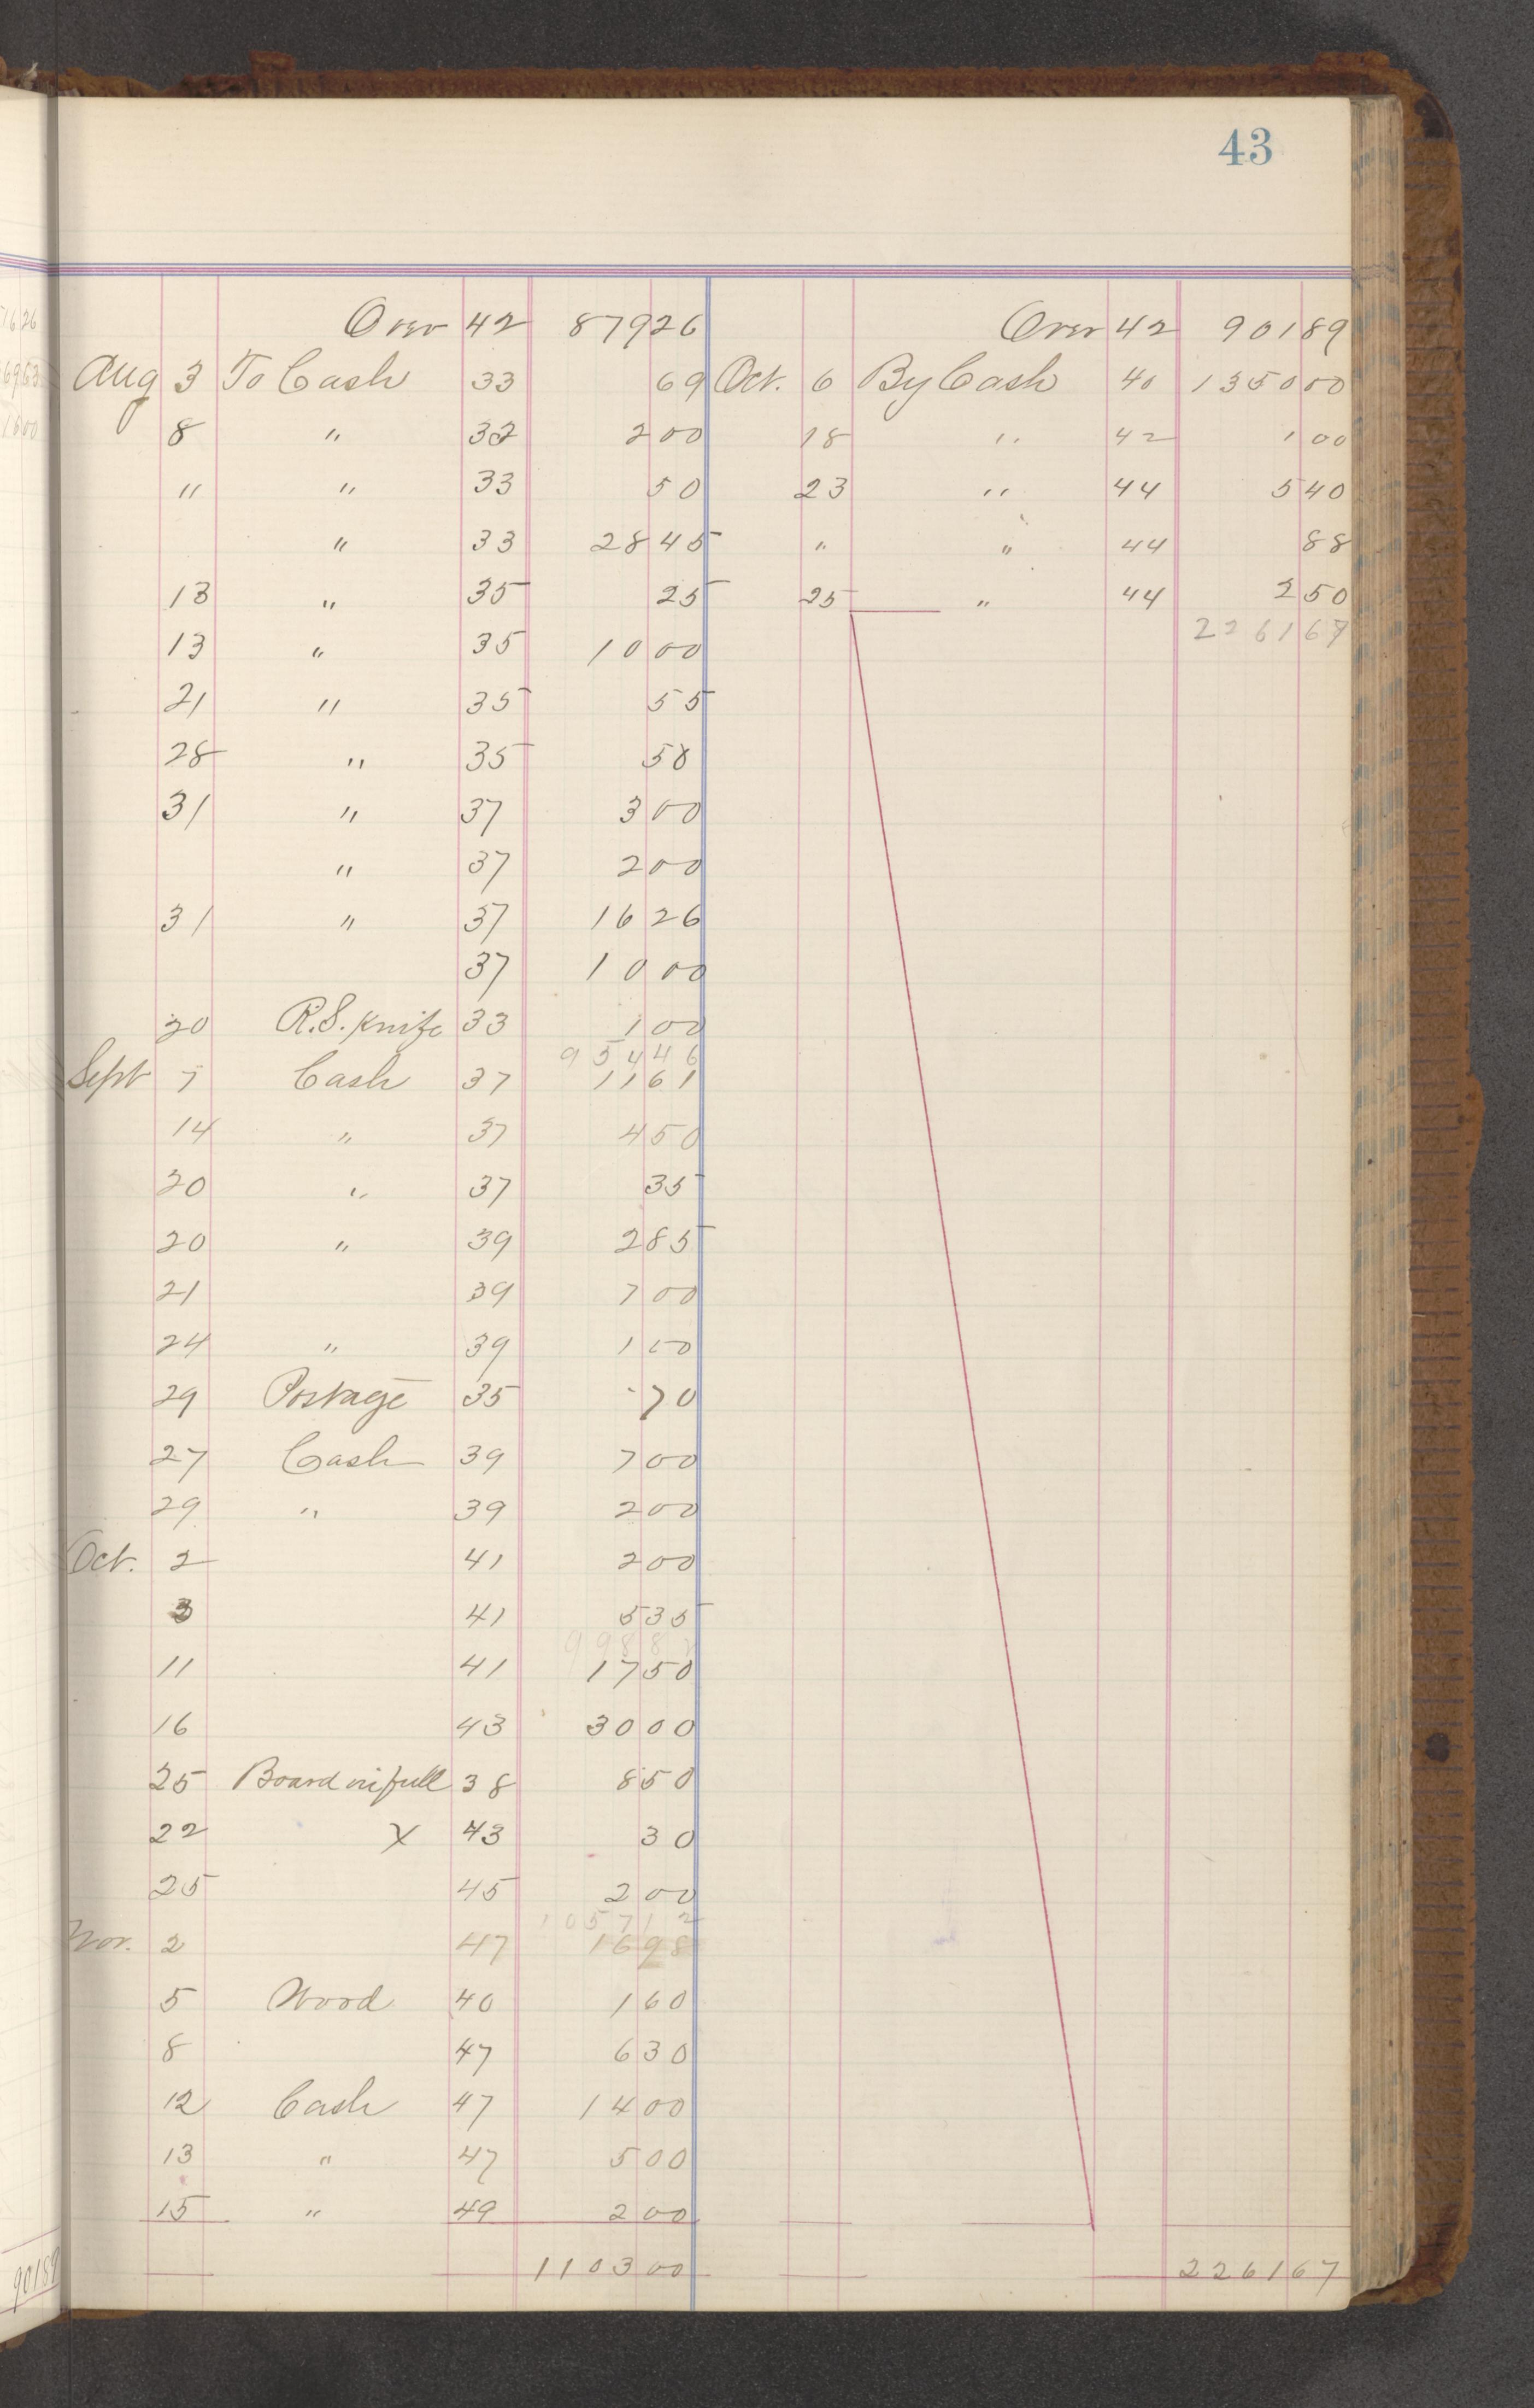 43
Over 42 879 26 Over 42 901 89
Aug 3 To Cash 33 69 Oct. 6 By Cash 40 1350 00
8 " 32 2 00 18 " 42 1 00
" " 33 50 23 " 44 5 40
" 33 28 45 " " 44 88
13 " 35 25 25 " 44 2 50
2261 67
13 " 35 10 00
21 " 35 55
28 " 35 58
31 " 37 3 00
" 37 2 00
31 " 37 16 26
37 10 00
20 R.S. Knife 33 1 00
954 46
Sept 7 Cash 37 11 61
14 " 37 4 50
20 " 37 35
20 " 39 2 85
21 39 7 00
24 " 39 1 00
29 Postage 35 70
27 Cash 39 7 00
29 " 39 2 00
Oct. 2 41 2 00
3 41 5 35
998 82
11 41 17 50
16 43 30 00
25 Board in full 38 8 50
22 X 43 30
25 45 2 00
1057 12
Nov. 2 47 16 98
5 Wood 40 1 60
8 47 6 30
12 Cash 47 14 00
13 " 47 5 00
15 " 49 2 00
1103 00 2261 67
901 89